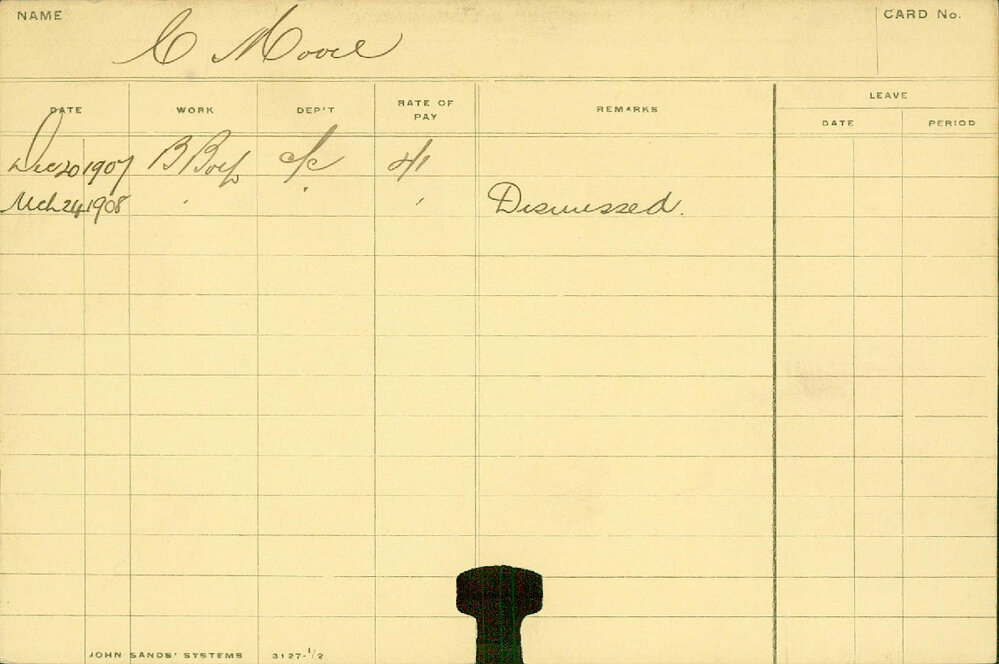 NAME C Moore CARD No.
DATE WORK DEP'T RATE OF PAY REMARKS LEAVE
DATE PERIOD
Dec 20 1907 B Boy c/c 4/1
Mch 24 1908 " " " Dismissed.
JOHN SANDS' SYSTEMS 3127-1/2